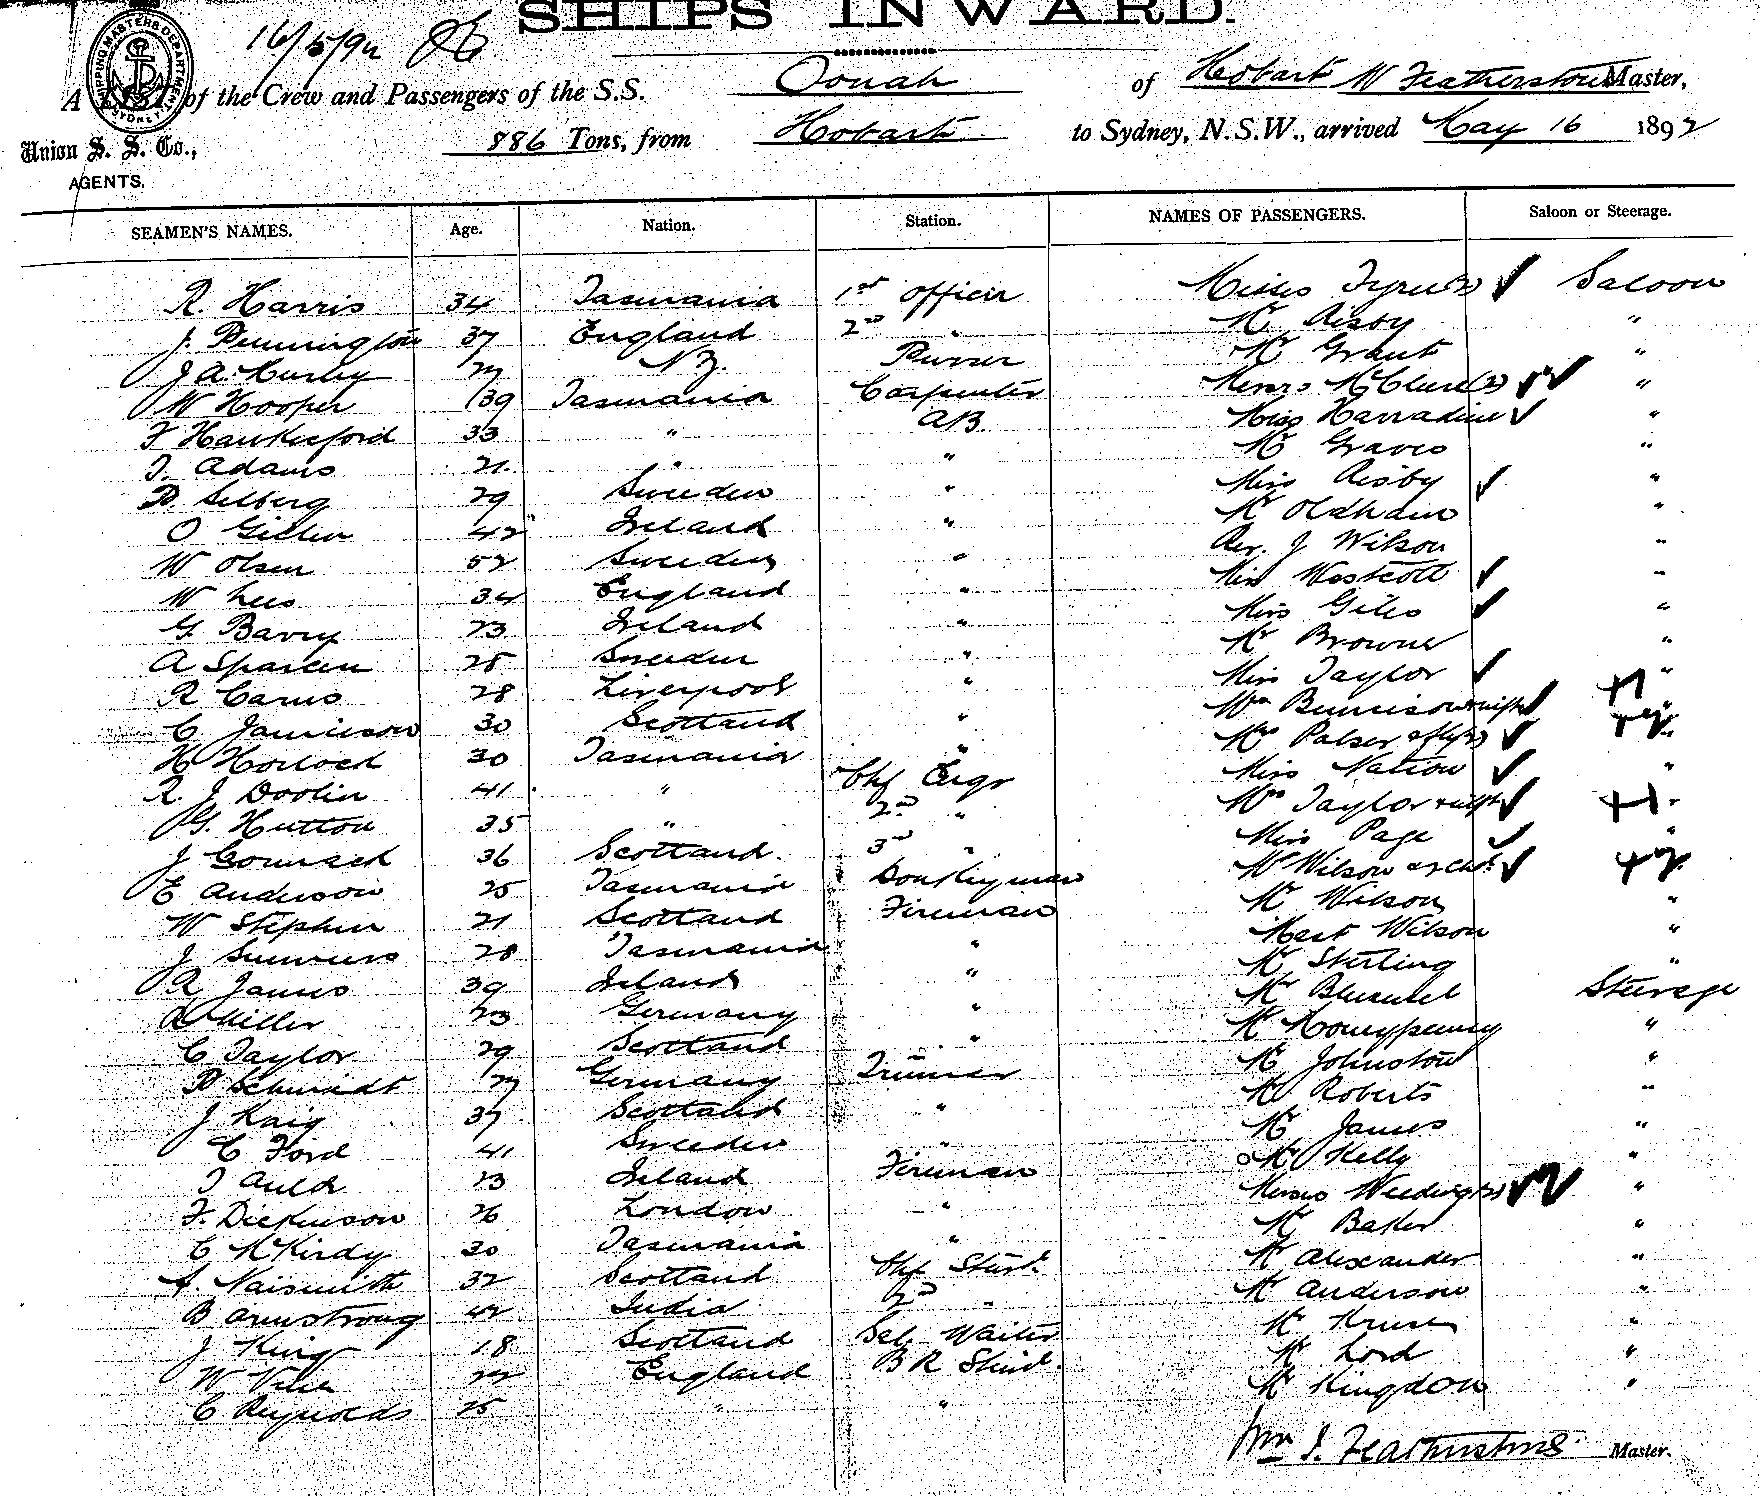 SHIPS INWARD.
16/5/92
A LIST of the Crew and Passengers of the S.S. Oonah of Hobart W Featherstone Master,
Union S. S. Co., AGENTS. 886 Tons, from Hobart to Sydney, N.S.W., arrived May 16 1892
SHIPPING MASTERS DEPARTMENT SYDNEY
SEAMEN'S NAMES. Age. Nation. Station. NAMES OF PASSENGERS. Saloon or Steerage.
R. Harris 34 Tasmania 1st Officer Misses Saloon
J. Pennington 37 England 2nd " Mr Risby "
J A. N.Z. Purser Mr Grant "
W Hooper 39 Tasmania Carpenter Messrs McClure (2) "
F Hawkesford 33 " A.B. Miss Harradine "
J. Adams 21 " " Mr Graves "
Selberg 29 Sweden " Miss Risby "
O 42 Ireland " Mr Oldham "
W Olsen 52 Sweden " Rev. J Wilson "
W Lees 34 England " Miss Westcott "
G. Barry 23 Ireland " Miss Giles "
A 25 Sweden " Mr Browne "
R Carns 28 Liverpool " Miss Taylor "
C Jamieson 30 Scotland " "
H Horlock 30 Tasmania " Mrs Palser "
R. J Doolin 41 " Chf Engr Miss Nation "
G. Hutton 35 " 2nd " Mrs Taylor
J Cormack 36 Scotland 3rd " Miss Page "
E Anderson 25 Tasmania Donkeyman Mrs Wilson
W Stephen 21 Scotland Fireman Mr Wilson "
J Summers 28 Tasmania " Mast Wilson "
R James 39 Ireland " Mr Stirling "
Miller 23 Germany " Mr Steerage
C Taylor 29 Scotland " Mr Honeypenny "
Schmidt 27 Germany Trimmer Mr Johnston "
J Haig 37 Scotland " Mr Roberts "
C Ford 41 Sweden " Mr James "
J Auld 23 Ireland Fireman Mr Kelly "
F. Dickinson 26 London " Messrs "
C McKirdy 30 Tasmania " Mr Baker "
A. Naismith 32 Scotland Chf Stwd. Mr Alexander "
B Armstrong 42 India 2nd " Mr Anderson "
J King 18 Scotland Sal. Waiter Mr Kruse "
W 22 England B R Stwd. Mr Lord "
C Reynolds 25 " " Mr Kingdon "
Wm J. Featherstone Master.